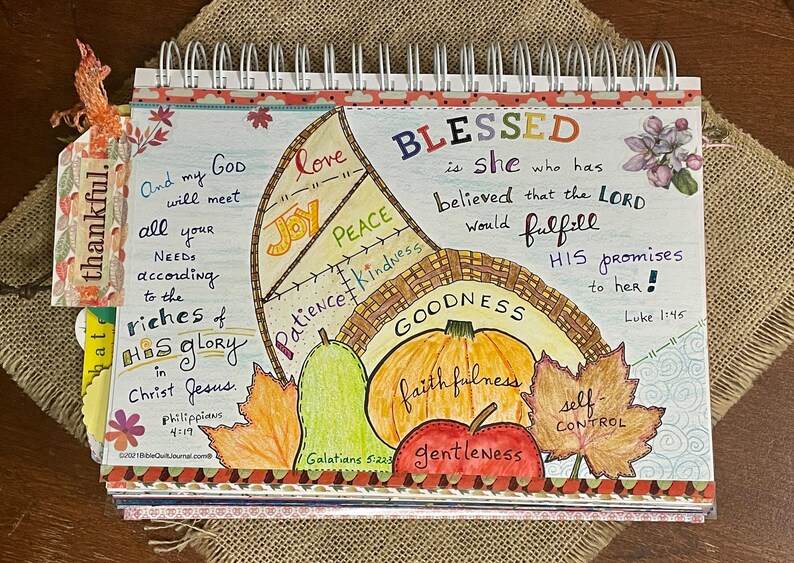 thankful.
And my GOD
will meet
all your
NEEDS
according
to the
riches of
HIS glory
in
Christ Jesus.
Philippians
4:19
©2021BibleQuiltJournal.com®
love
JOY
PEACE
Kindness
Patience
GOODNESS
faithfulness
gentleness
self-
CONTROL
Galatians 5:22-3
BLESSED
is she who has
believed that the LORD
would fulfill
HIS promises
to her!
Luke 1:45